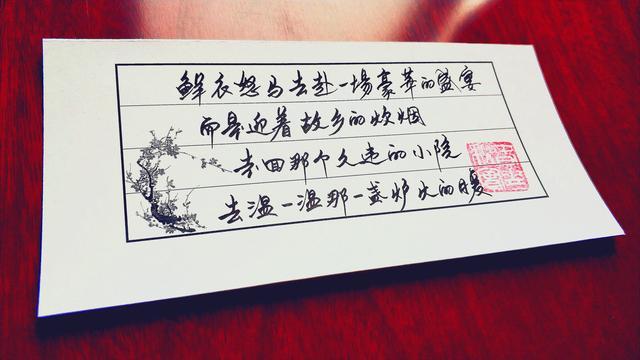 鲜衣怒马去赴一場豪華的盛宴
而是迎着故乡的炊烟
去回那个久违的小院
去温一温那一盏炉火的暖